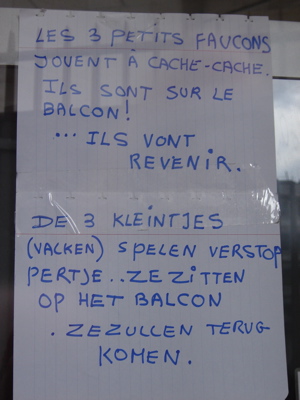 LES 3 PETITS FAUCONS
JOUENT À CACHE-CACHE.
ILS SONT SUR LE
BALCON!
... ILS VONT
REVENIR.
DE 3 KLEINTJES
(VALKEN) SPELEN VERSTOP
PERTJE.. ZE ZITTEN
OP HET BALCON
. ZE ZULLEN TERUG
KOMEN.